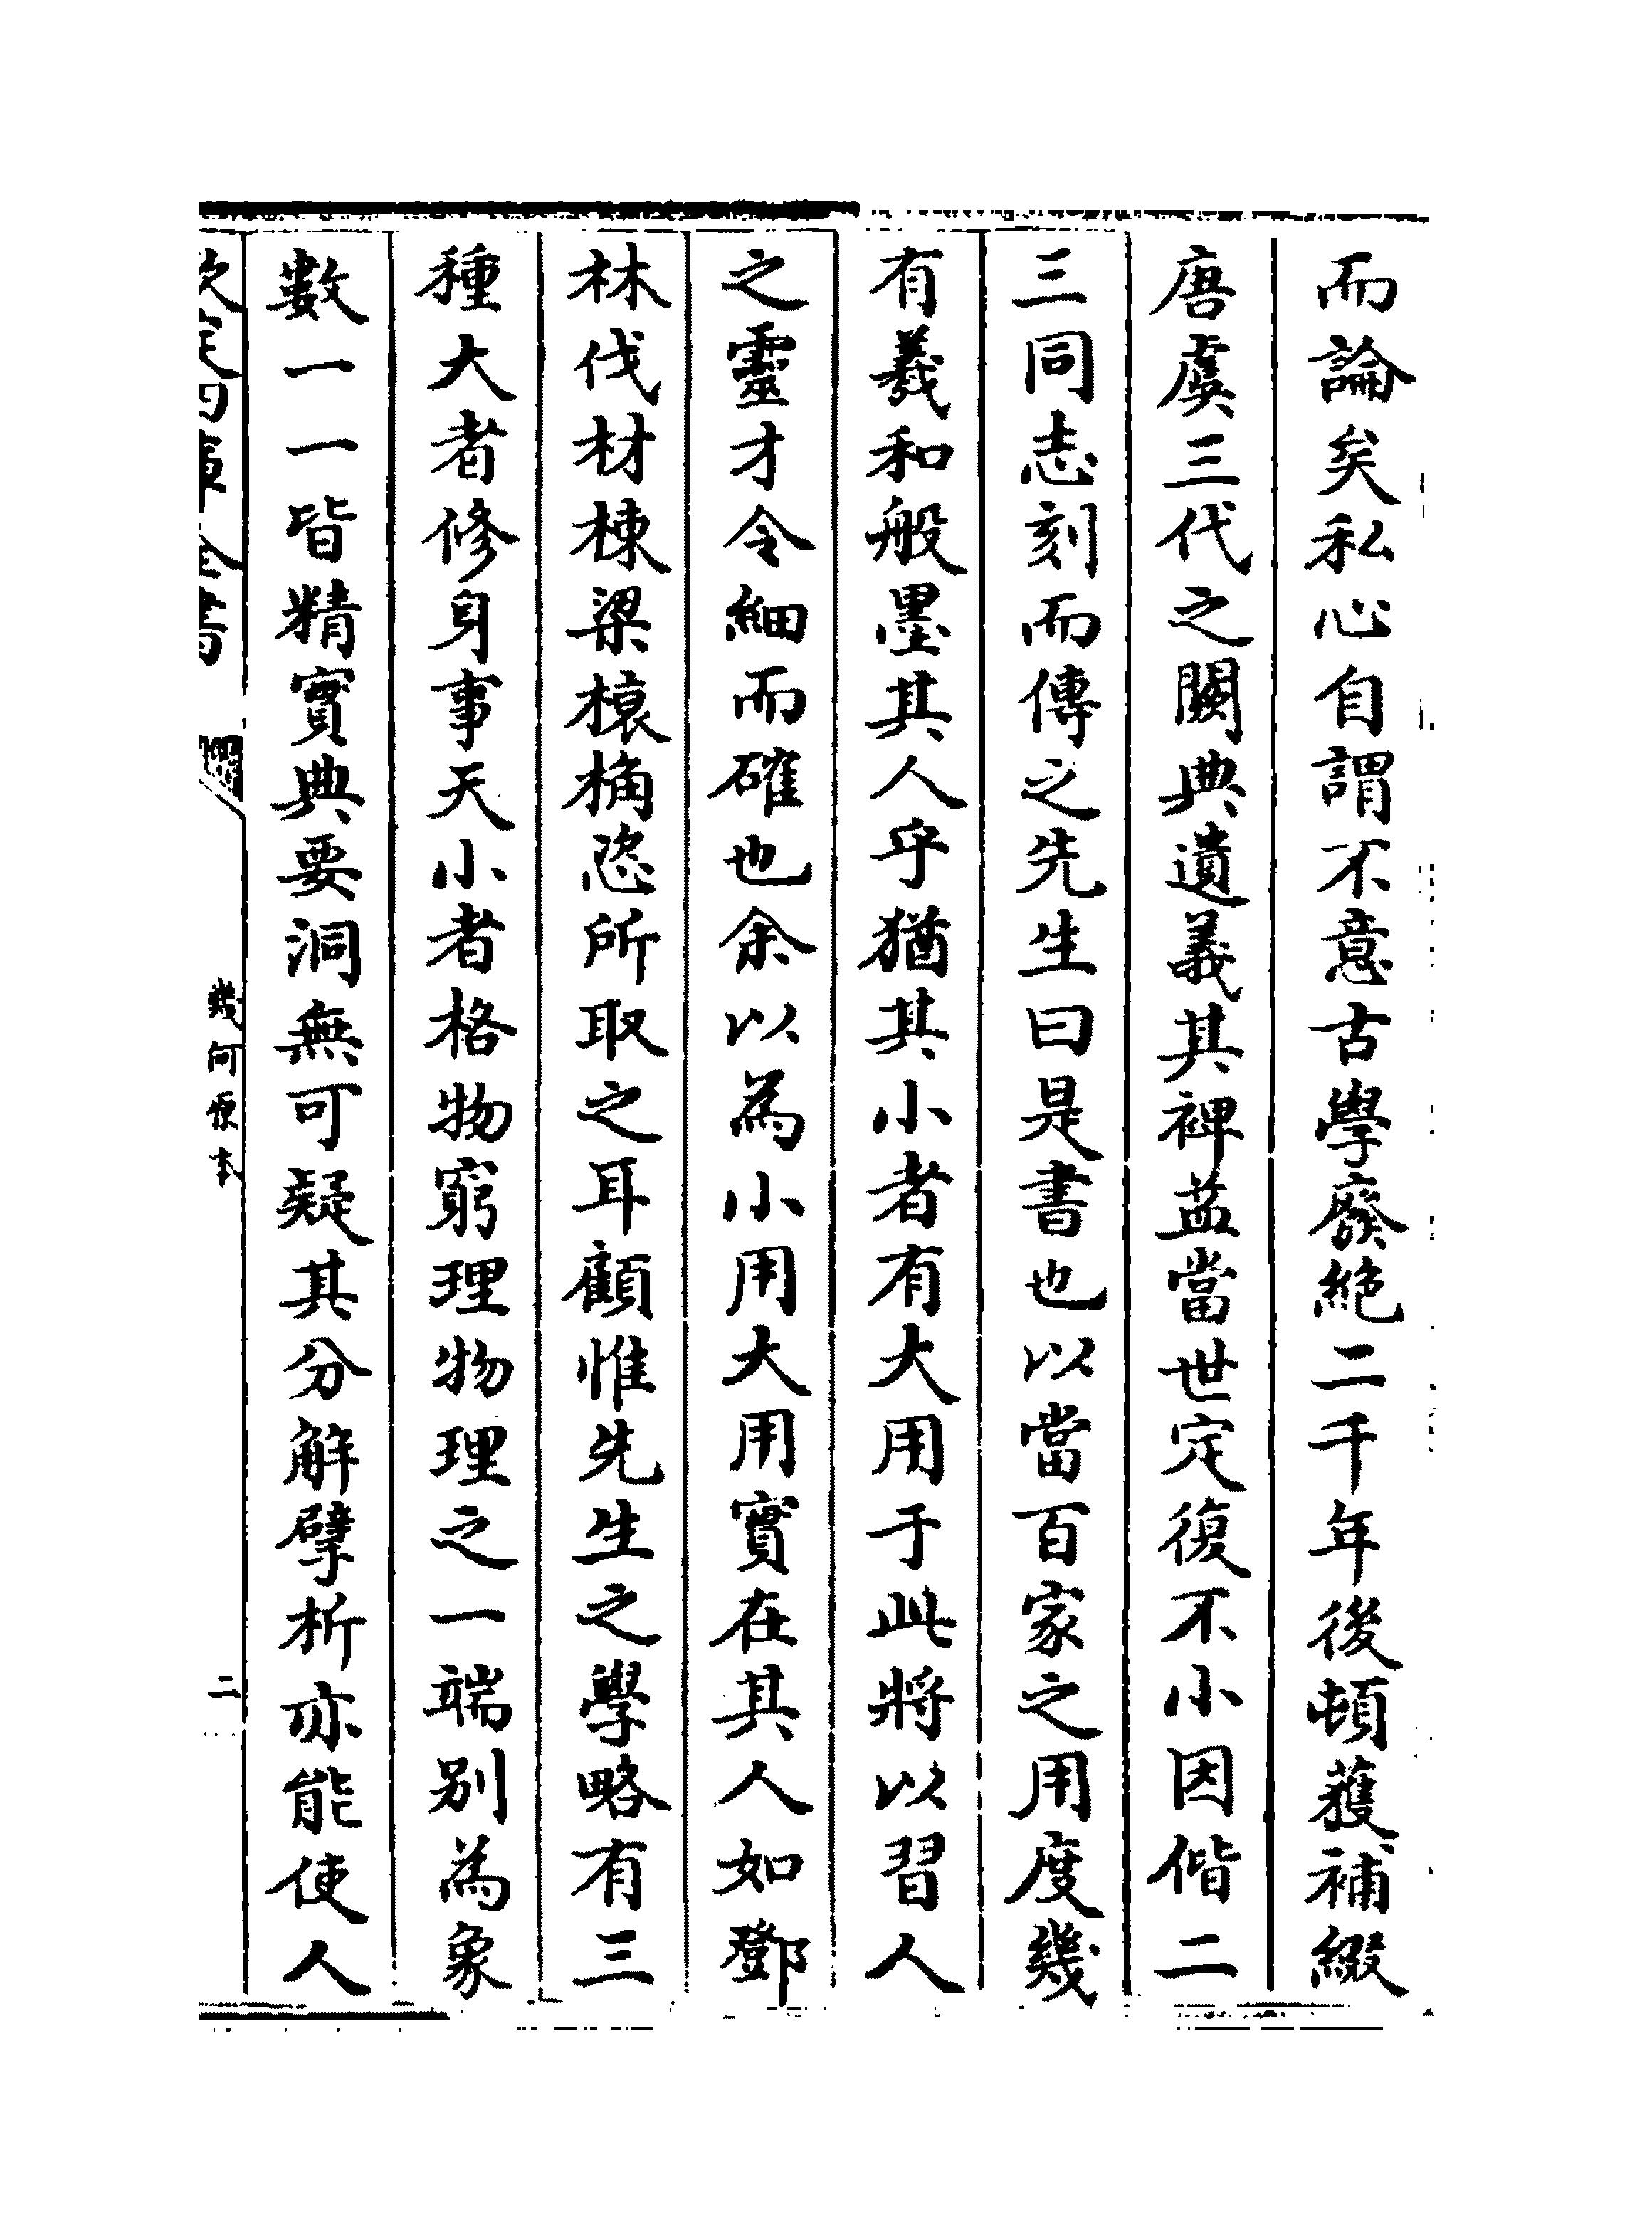 而論矣私心自謂不意古學廢絶二千年後頓獲補綴
唐虞三代之闕典遺義其裨益當世定復不小因偕二
三同志刻而傳之先生曰是書也以當百家之用庶幾
有羲和般墨其人乎猶其小者有大用于此將以習人
之靈才令細而確也余以為小用大用實在其人如鄧
林伐材棟梁榱桷恣所取之耳顧惟先生之學略有三
種大者修身事天小者格物窮理物理之一端别為象
數一一皆精實典要洞無可疑其分解擘析亦能使人
欽定四庫全書
幾何原本
二